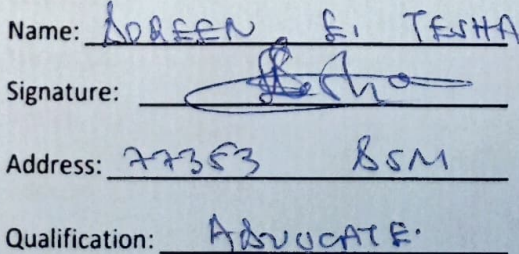 Name: DOREEN E. TESHA
Signature:
Address: 77353 DSM
Qualification: ADVOCATE.